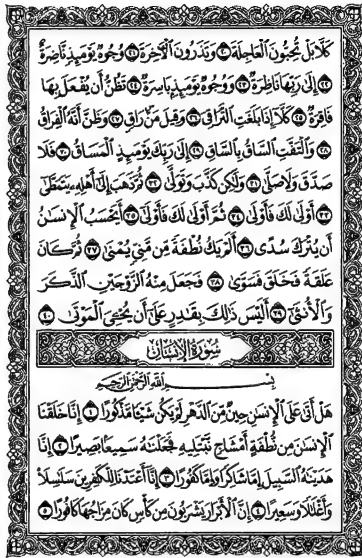 كَلَّا بَلْ تُحِبُّونَ الْعَاجِلَةَ ۝٢٠ وَتَذَرُونَ الْآخِرَةَ ۝٢١ وُجُوهٌ يَوْمَئِذٍ نَّاضِرَةٌ
۝٢٢ إِلَىٰ رَبِّهَا نَاظِرَةٌ ۝٢٣ وَوُجُوهٌ يَوْمَئِذٍ بَاسِرَةٌ ۝٢٤ تَظُنُّ أَن يُفْعَلَ بِهَا
فَاقِرَةٌ ۝٢٥ كَلَّا إِذَا بَلَغَتِ التَّرَاقِيَ ۝٢٦ وَقِيلَ مَنْ رَاقٍ ۝٢٧ وَظَنَّ أَنَّهُ الْفِرَاقُ
۝٢٨ وَالْتَفَّتِ السَّاقُ بِالسَّاقِ ۝٢٩ إِلَىٰ رَبِّكَ يَوْمَئِذٍ الْمَسَاقُ ۝٣٠ فَلَا
صَدَّقَ وَلَا صَلَّىٰ ۝٣١ وَلَٰكِن كَذَّبَ وَتَوَلَّىٰ ۝٣٢ ثُمَّ ذَهَبَ إِلَىٰ أَهْلِهِ يَتَمَطَّىٰ
۝٣٣ أَوْلَىٰ لَكَ فَأَوْلَىٰ ۝٣٤ ثُمَّ أَوْلَىٰ لَكَ فَأَوْلَىٰ ۝٣٥ أَيَحْسَبُ الْإِنسَانُ
أَن يُتْرَكَ سُدًى ۝٣٦ أَلَمْ يَكُ نُطْفَةً مِّن مَّنِيٍّ يُمْنَىٰ ۝٣٧ ثُمَّ كَانَ
عَلَقَةً فَخَلَقَ فَسَوَّىٰ ۝٣٨ فَجَعَلَ مِنْهُ الزَّوْجَيْنِ الذَّكَرَ
وَالْأُنثَىٰ ۝٣٩ أَلَيْسَ ذَٰلِكَ بِقَادِرٍ عَلَىٰ أَن يُحْيِيَ الْمَوْتَىٰ ۝٤٠
سُورَةُ الْإِنسَانِ
بِسْمِ اللَّهِ الرَّحْمَٰنِ الرَّحِيمِ
هَلْ أَتَىٰ عَلَى الْإِنسَانِ حِينٌ مِّنَ الدَّهْرِ لَمْ يَكُن شَيْئًا مَّذْكُورًا ۝١ إِنَّا خَلَقْنَا
الْإِنسَانَ مِن نُّطْفَةٍ أَمْشَاجٍ نَّبْتَلِيهِ فَجَعَلْنَاهُ سَمِيعًا بَصِيرًا ۝٢ إِنَّا
هَدَيْنَاهُ السَّبِيلَ إِمَّا شَاكِرًا وَإِمَّا كَفُورًا ۝٣ إِنَّا أَعْتَدْنَا لِلْكَافِرِينَ سَلَاسِلَا
وَأَغْلَالًا وَسَعِيرًا ۝٤ إِنَّ الْأَبْرَارَ يَشْرَبُونَ مِن كَأْسٍ كَانَ مِزَاجُهَا كَافُورًا ۝٥